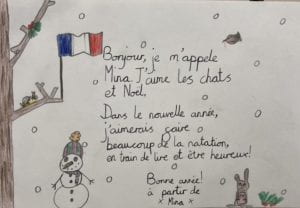 Bonjour, je m'appele
Mina. J'aime les chats
et Noël.
Dans le nouvelle année,
j'aimerais faire
beaucoup de la natation,
en train de lire et être heureux!
Bonne année!
à partir de
x Mina x